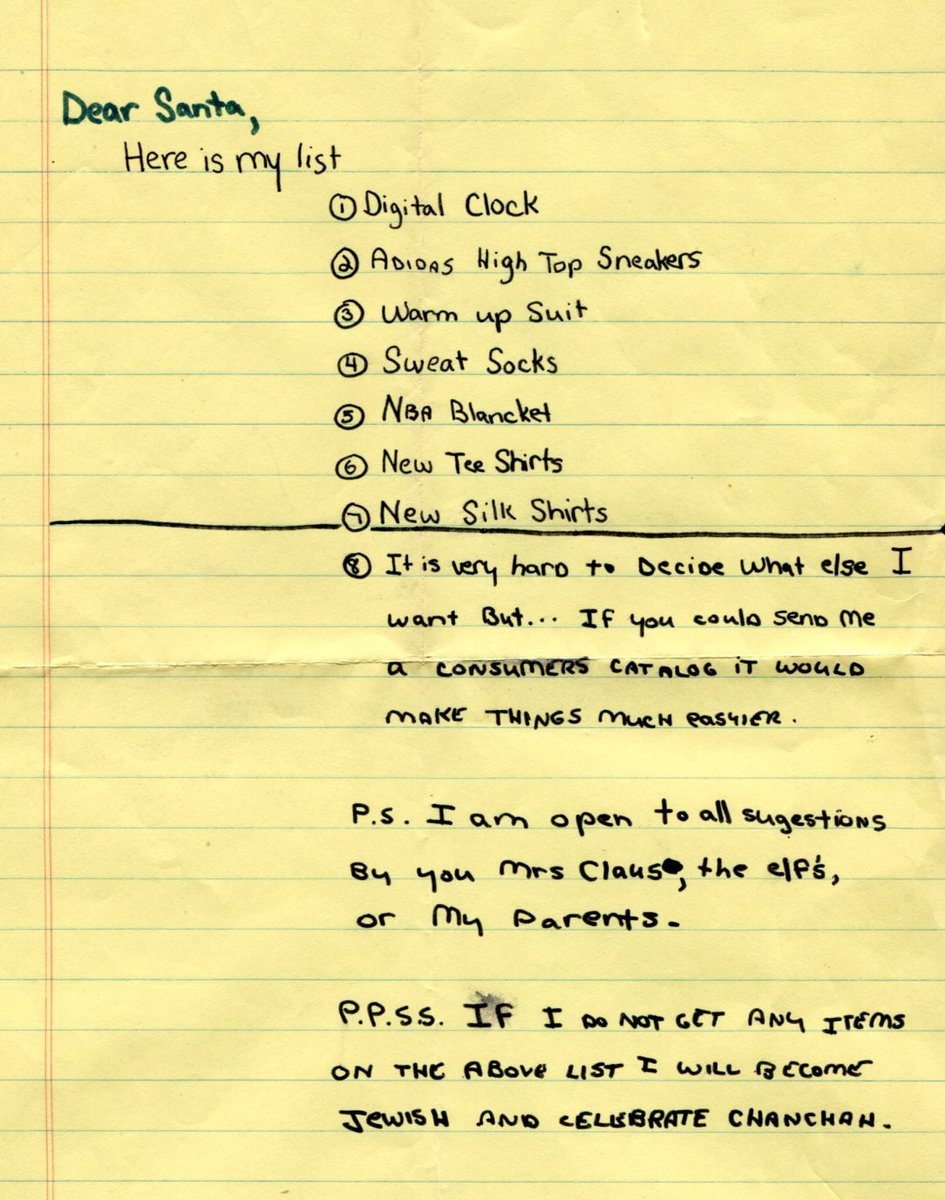 Dear Santa,
Here is my list
① Digital Clock
② ADIDAS High Top Sneakers
③ Warm up Suit
④ Sweat Socks
⑤ NBA Blancket
⑥ New Tee Shirts
⑦ New Silk Shirts
⑧ It is very hard to Decide what else I
want But... If you could send me
a CONSUMERS CATALOG iT WOULD
MAKE THINGS much easyier.
P.S. I am open to all sugestions
By you Mrs Claus, the elf's,
or My Parents.
P.P.S.S. IF I DO NOT GET ANY ITEMS
ON THE ABOVE LIST I WILL BECOME
JEWISH AND CELEBRATE CHANCHAH.